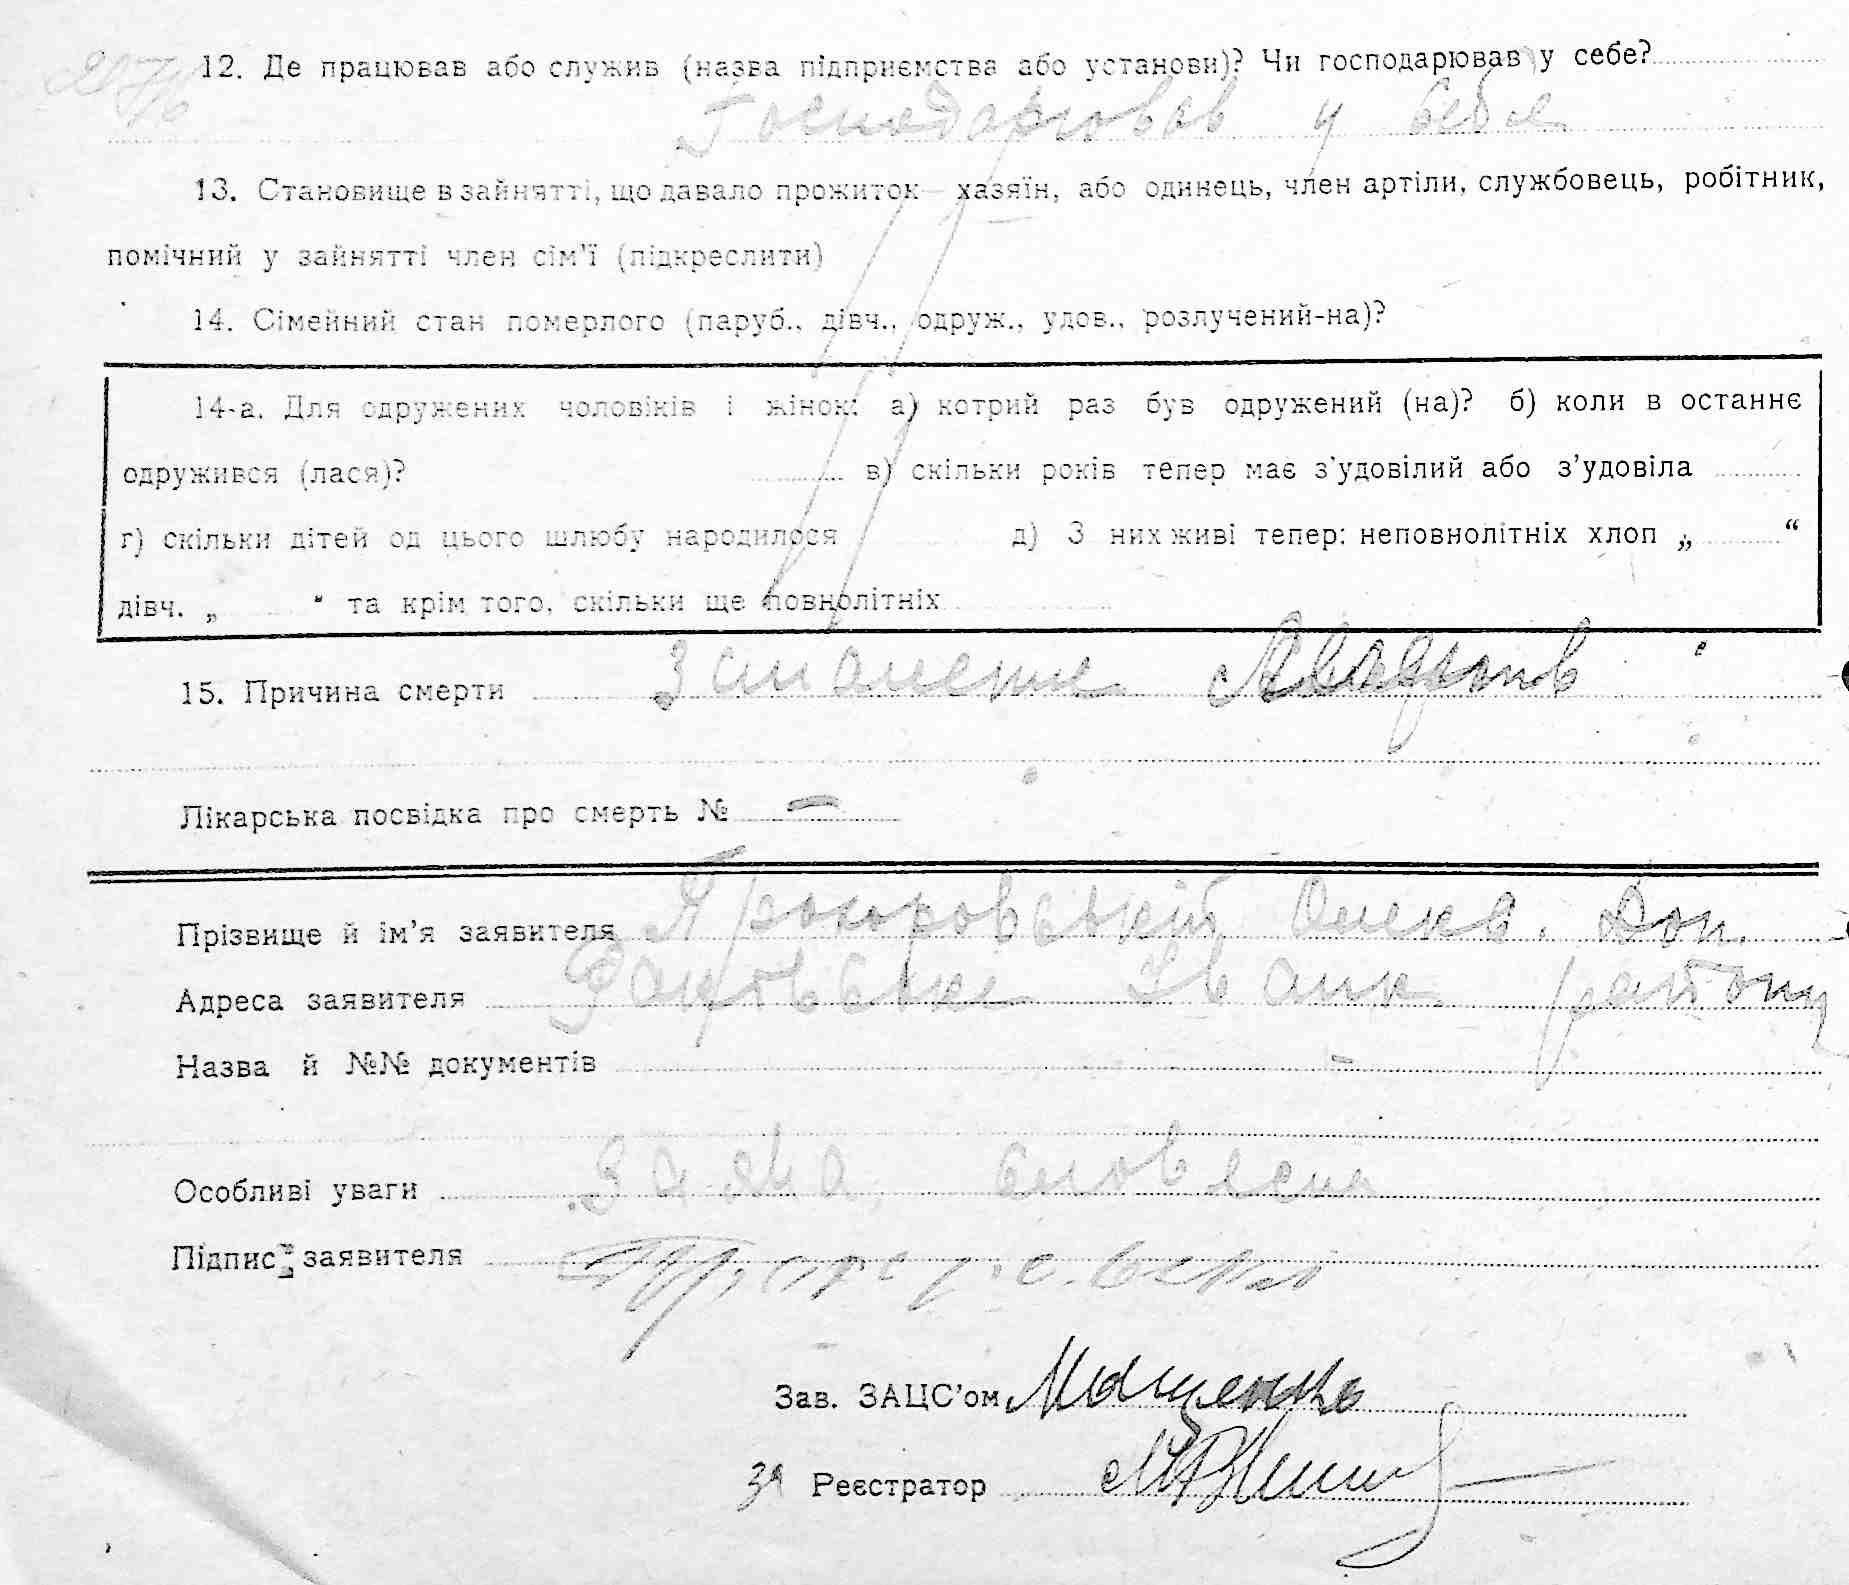 12. Де працював або служив (назва підприємства або установи)? Чи господарював у себе?
Господарював у себе
13. Становище в зайнятті, що давало прожиток — хазяїн, або одинець, член артіли, службовець, робітник,
помічний у зайнятті член сім'ї (підкреслити)
14. Сімейний стан померлого (паруб., дівч., одруж., удов., розлучений-на)?
14-а. Для одружених чоловіків і жінок: а) котрий раз був одружений (на)? б) коли в останнє
одружився (лася)? в) скільки років тепер має з'удовілий або з'удовіла
г) скільки дітей од цього шлюбу народилося д) З них живі тепер: неповнолітніх хлоп „ “
дівч. „ “ та крім того, скільки ще повнолітніх
15. Причина смерти Запаления
Лікарська посвідка про смерть № —
Прізвище й ім'я заявителя Олекс.
Адреса заявителя Іванк. району
Назва й №№ документів
Особливі уваги Заява словесна
Підпис заявителя
Зав. ЗАЦС'ом Мощенко
За Реєстратор